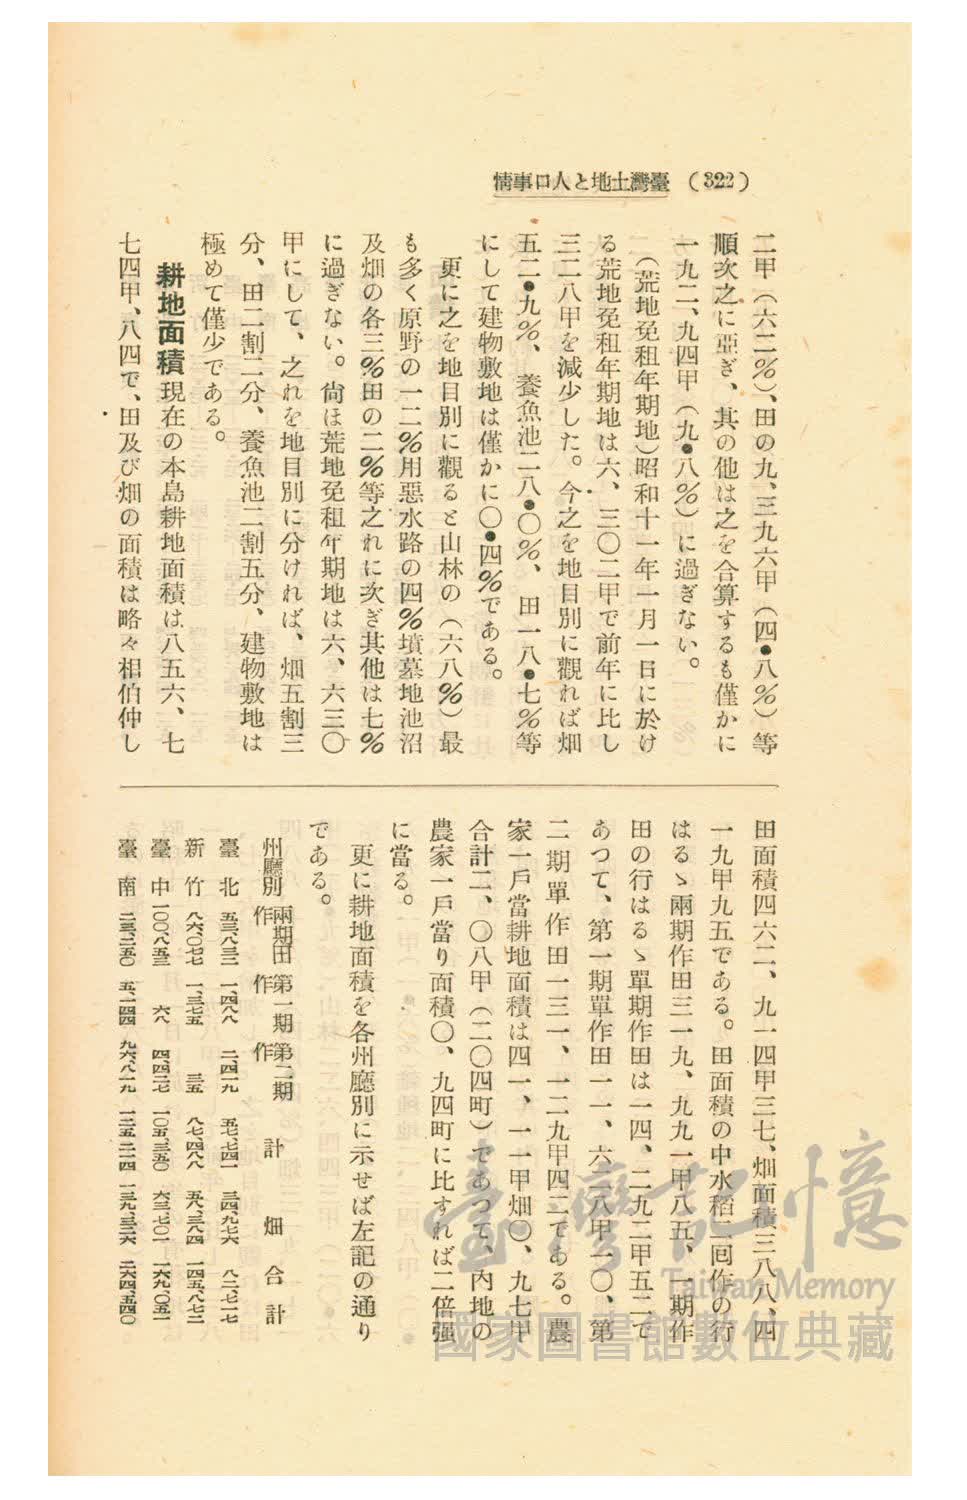 (322) 臺灣土地と人口事情
二甲(六二%)、田の九、三九六甲(四•八%)等
順次之に亞ぎ、其の他は之を合算するも僅かに
一九二、九四甲(九•八%)に過ぎない。
(荒地免租年期地)昭和十一年一月一日に於け
る荒地免租年期地は六、三〇二甲で前年に比し
三二八甲を減少した。今之を地目別に觀れば畑
五二•九%、養魚池二八•〇%、田一八•七%等
にして建物敷地は僅かに〇•四%である。
更に之を地目別に觀ると山林の(六八%)最
も多く原野の一二%用惡水路の四%墳墓地池沼
及畑の各三%田の二%等之れに次ぎ其他は七%
に過ぎない。尙ほ荒地免租年期地は六、六三〇
甲にして、之れを地目別に分ければ、畑五割三
分、田二割二分、養魚池二割五分、建物敷地は
極めて僅少である。
耕地面積 現在の本島耕地面積は八五六、七
七四甲、八四で、田及び畑の面積は略々相伯仲し
田面積四六二、九一四甲三七、畑面積三八八、四
一九甲九五である。田面積の中水稻二囘作の行
はるゝ兩期作田三一九、九九一甲八五、一期作
田の行はるゝ單期作田は一四、二九二甲五二で
あつて、第一期單作田一一、六二八甲一〇、第
二期單作田一三一、一二九甲四二である。農
家一戶當耕地面積は四一、一一甲畑〇、九七甲
合計二、〇八甲(二〇四町)であつて、內地の
農家一戶當り面積〇、九四町に比すれば二倍强
に當る。
更に耕地面積を各州廳別に示せば左記の通り
である。
州廳別 兩期田作 第一期作 第二期作 計 畑 合計
臺北 五三、八三三 一、四八八 二、四一九 五七、七四一 三四、九七六 八二、七一七
新竹 八六、〇七七 一、三七五 三五 八七、四八八 五八、三八四 一四五、八七三
臺中 一〇〇、八五三 六八 四、四二七 一〇五、三五〇 六三、七〇一 一六九、〇五一
臺南 二三、二五〇 五、一四四 九六、八一九 一二五、二一四 一三九、三二六 二六四、五四〇
臺灣記憶
Taiwan Memory
國家圖書館數位典藏